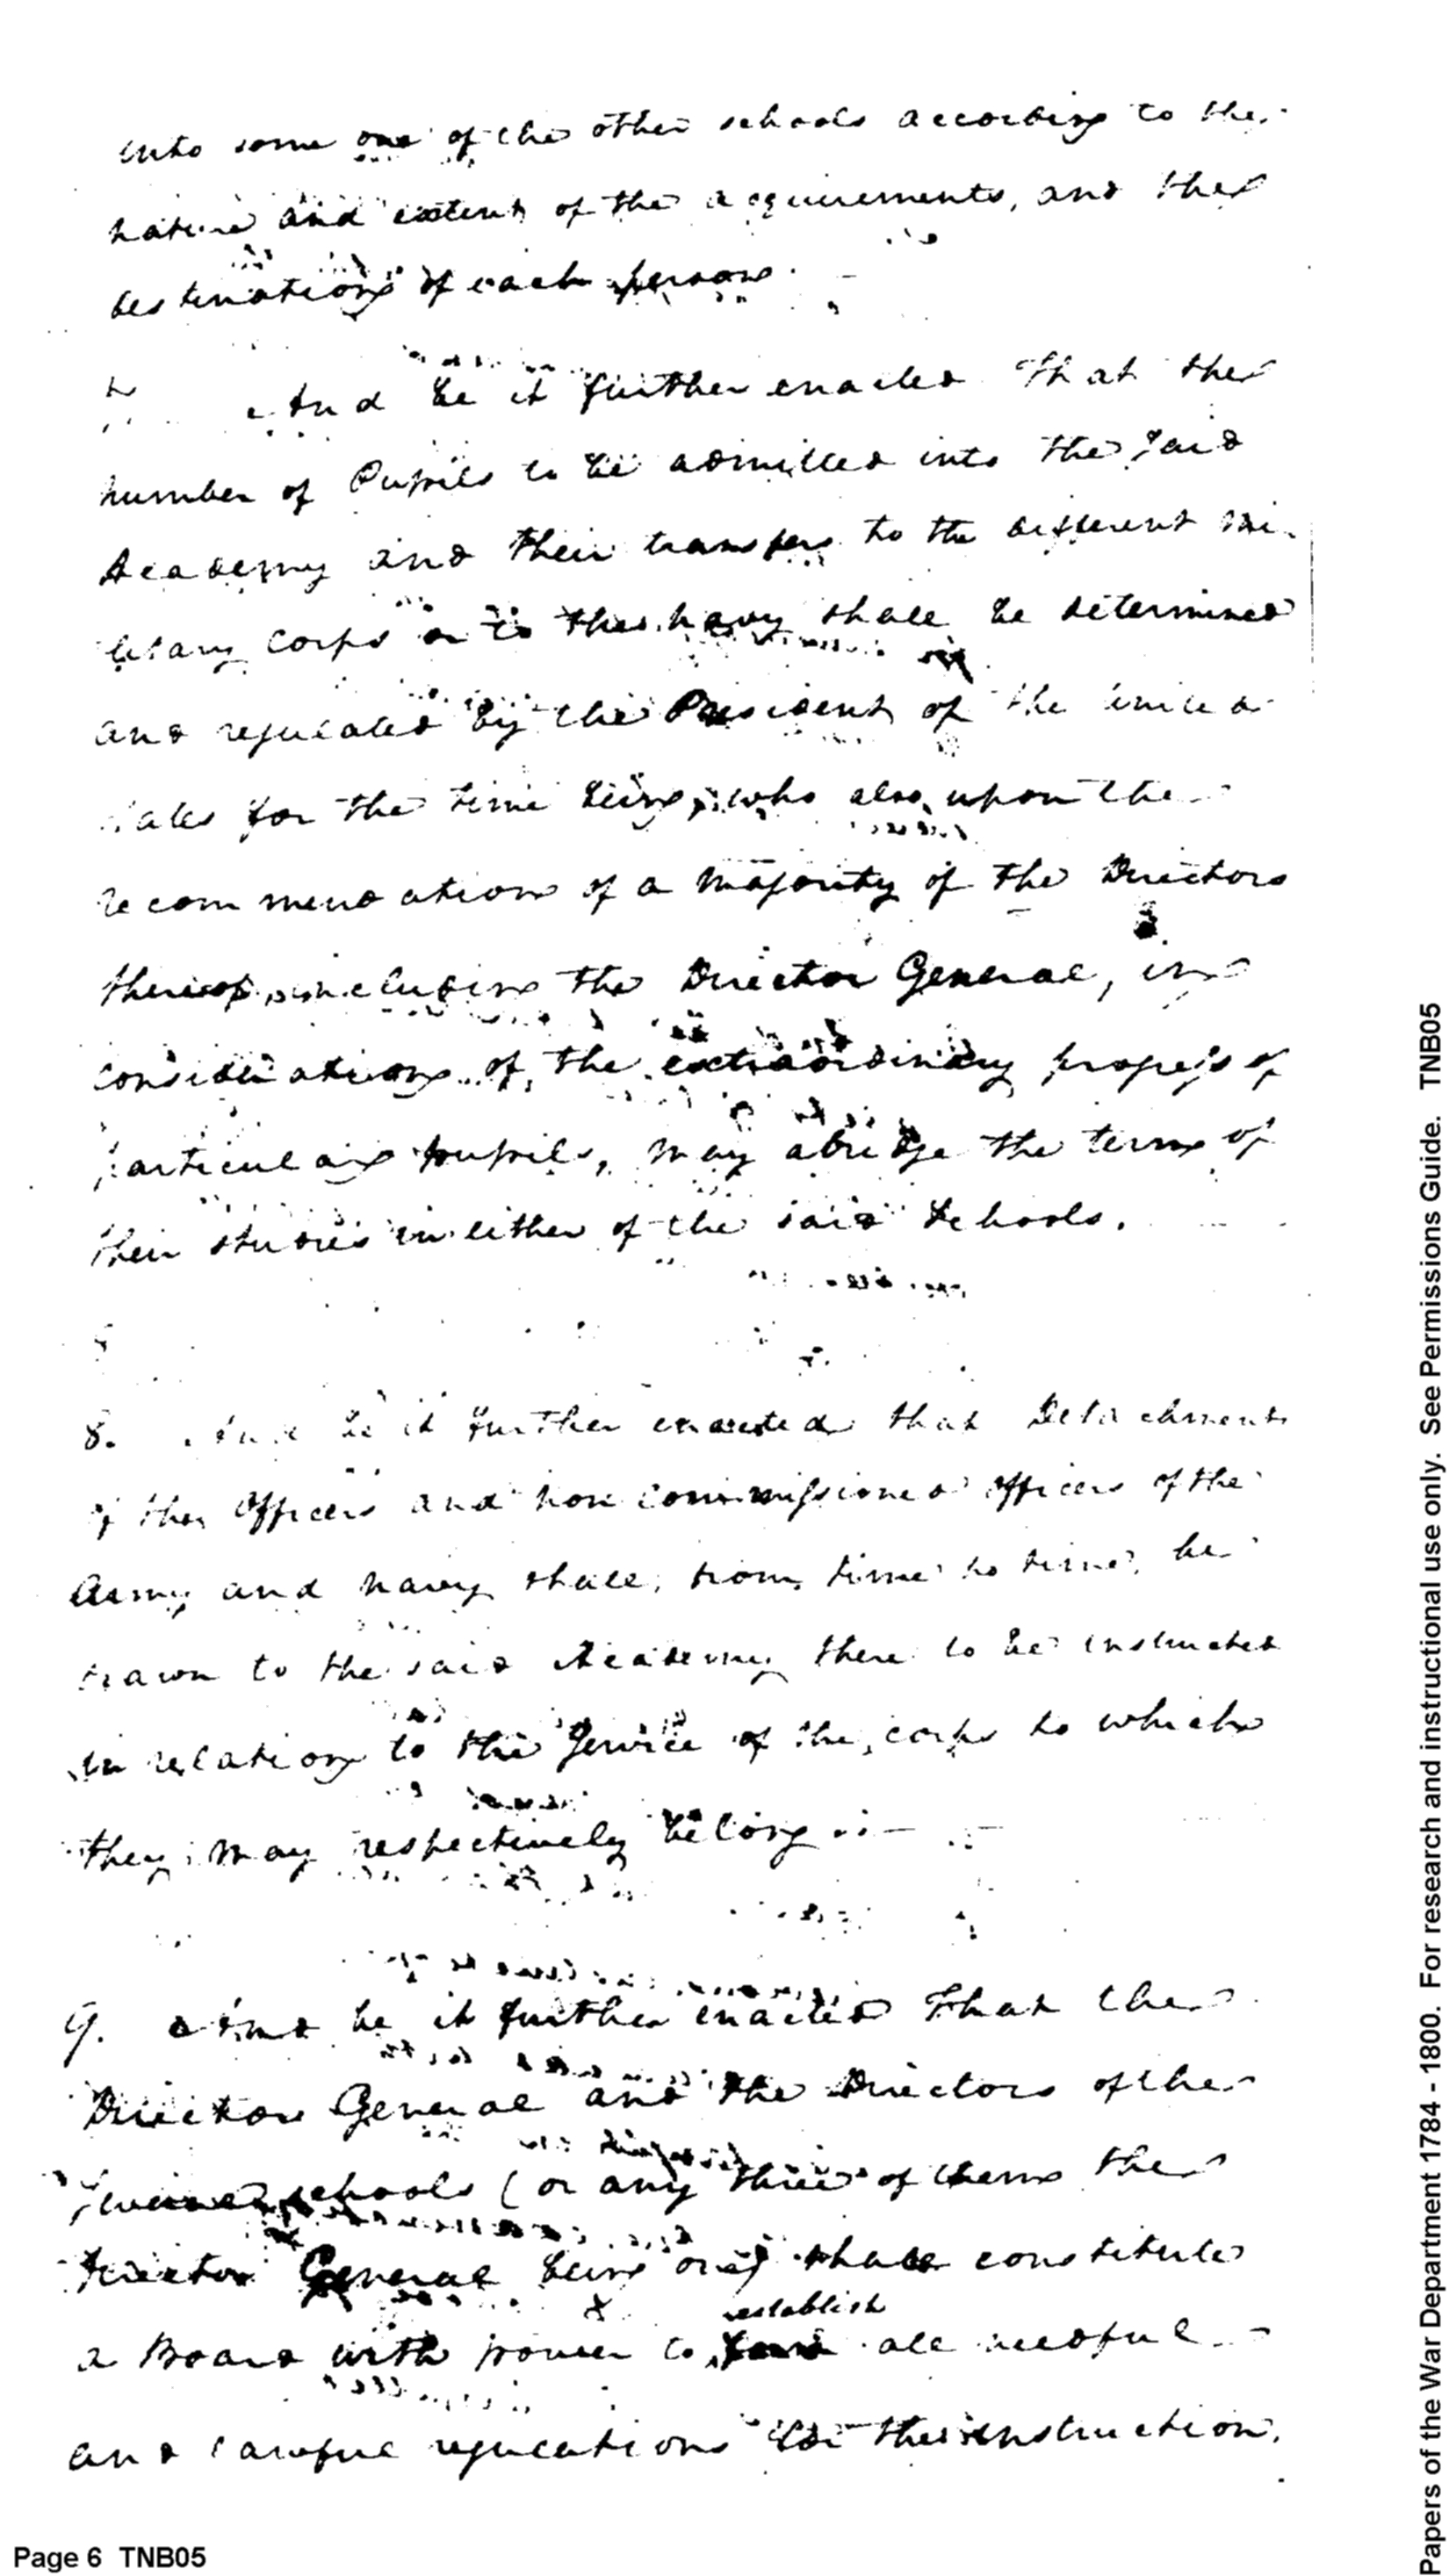 into some one of the other schools according to the
nature and extent of the acquirements, and the
destination of each person.
7. And be it further enacted That the
number of Pupils to be admitted into the said
Academy and their transfer to the different mi-
litary corps or to the navy shall be determined
and regulated by the President of the United
States for the time being, who also, upon the
recommendation of a majority of the Directors
thereof, including the Director General, in
consideration of the extraordinary progress of
particular pupils, may abridge the term of
their studies in either of the said Schools.
8. And be it further enacted that Detachments
of the Officers and non commissioned officers of the
Army and navy shall, from time to time, be
drawn to the said Academy there to be instructed
in relation to the service of the corps to which
they may respectively belong.—
9. And be it further enacted That the
Director General and the Directors of the
schools (or any three of them the
Director General being one) shall constitute
establish
a Board with power to all needful
and lawful regulations for the instruction,
Page 6 TNB05
Papers of the War Department 1784 - 1800. For research and instructional use only. See Permissions Guide. TNB05